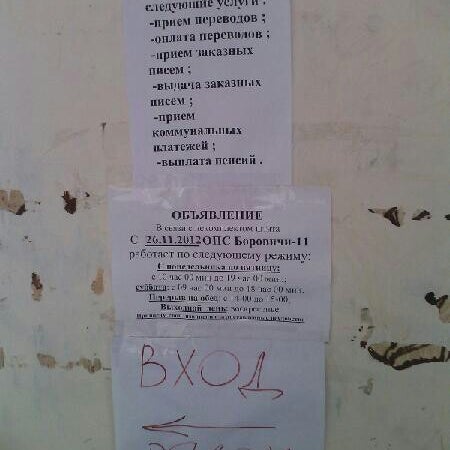 следующие услуги :
-прием переводов ;
-оплата переводов ;
-прием заказных
писем ;
-выдача заказных
писем ;
-прием
коммунальных
платежей ;
-выплата пенсий .
ОБЪЯВЛЕНИЕ
В связи с некомплектом штата
С 26.11.2012 ОПС Боровичи-11
работает по следующему режиму:
С понедельника по пятницу:
до 19 час 00 мин ;
суббота: с 09 час 00 мин до 18 час 00 мин.
Перерыв на обед: с 14-00 до 15-00
Выходной день: воскресенье
ВХОД